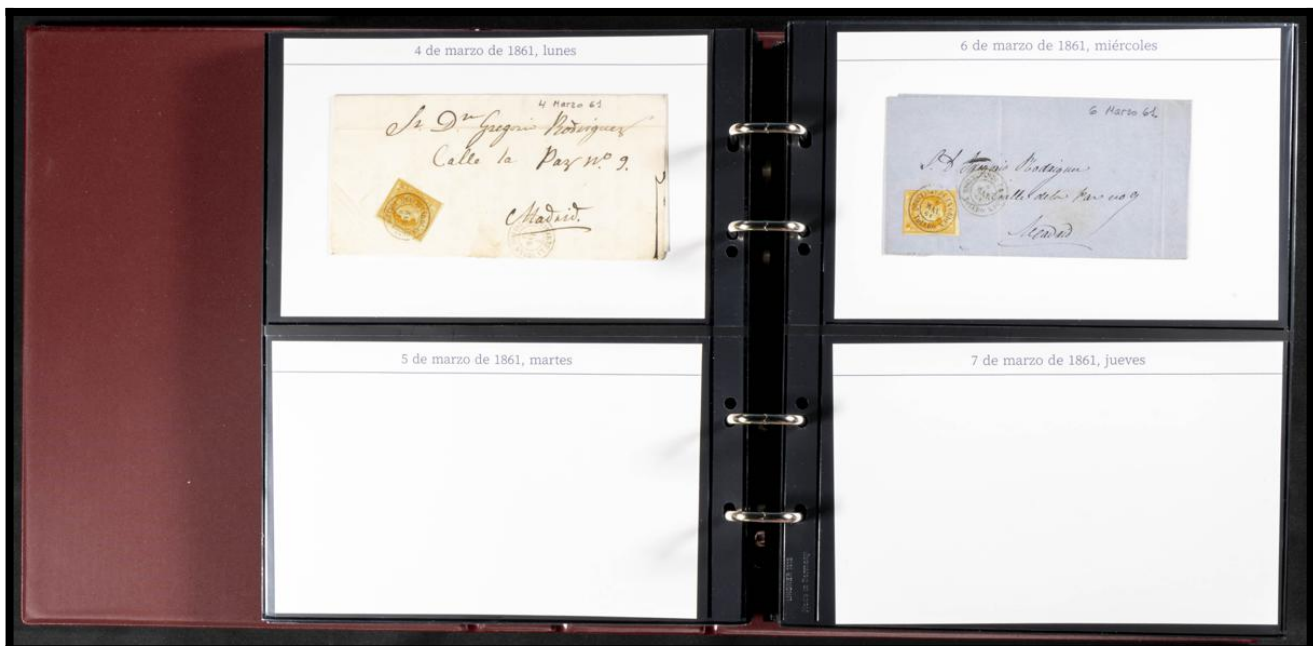 4 de marzo de 1861, lunes
4 Marzo 61
Sr Dn Gregorio Rodriguez
Calle la Paz nº 9.
Madrid.
5 de marzo de 1861, martes
6 de marzo de 1861, miércoles
6 Marzo 61
S. D. Gregorio Rodriguez
Calle de la Paz no 9
Madrid
7 de marzo de 1861, jueves
Made in Germany